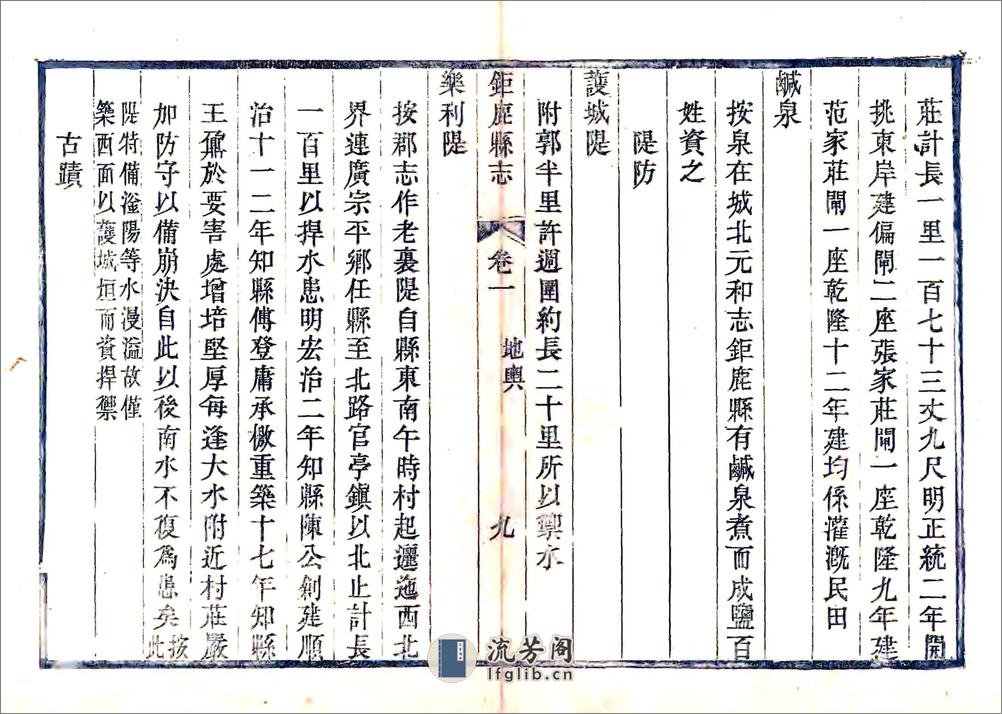 莊計長一里一百七十三丈九尺明正統二年開
挑東岸建偏閘二座張家莊閘一座乾隆九年建
范家莊閘一座乾隆十二年建均係灌漑民田
鹹泉
按泉在城北元和志鉅鹿縣有鹹泉煮而成鹽百
姓資之
隄防
護城隄
附郭半里許週圍約長二十里所以禦水
鉅鹿縣志 卷一 地輿 九
樂利隄
按郡志作老襄隄自縣東南午時村起邐迤西北
界連廣宗平鄉任縣至北路官亭鎮以北止計長
一百里以捍水患明宏治二年知縣陳公創建順
治十一二年知縣傅登庸承檄重築十七年知縣
王鼐於要害處增培堅厚每逢大水附近村莊嚴
加防守以備崩決自此以後南水不復爲患矣按此
隄特備滏陽等水漫溢故僅
築西面以護城垣而資捍禦
古蹟
流芳阁
lfglib.cn